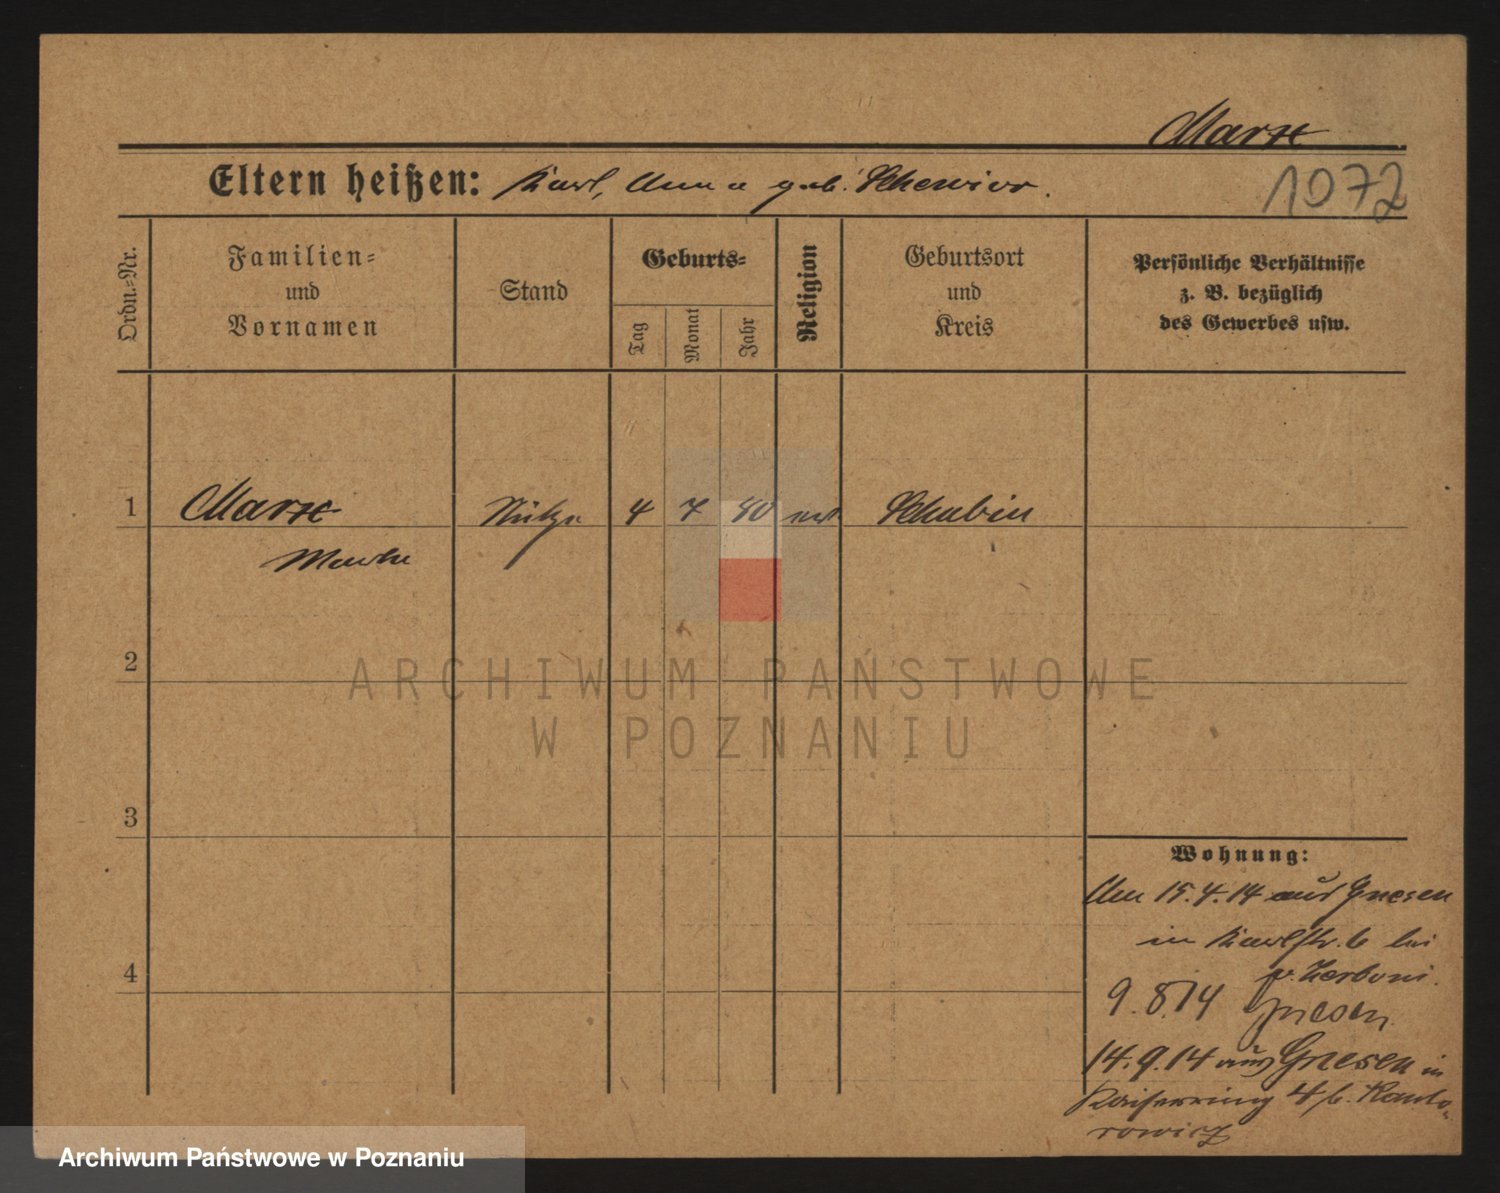 Marx
Eltern heißen: Karl, Anna geb.
1072
Ordn.-Nr.
Familien-
und
Vornamen
Stand
Geburts-
Tag
Monat
Jahr
Religion
Geburtsort
und
Kreis
Persönliche Verhältnisse
z. B. bezüglich
des Gewerbes usw.
1 Marx Stütze 4 7 80 Schubin
2
ARCHIWUM PAŃSTWOWE
W POZNANIU
3
Wohnung:
Am 15.4.14 aus Gnesen
in Karlstr. 6 bei
4
v. Zerboni.
9.8.14 Gnesen.
14.9.14 aus Gnesen in
Kaiserring 4 b. Kanto-
rowicz
Archiwum Państwowe w Poznaniu